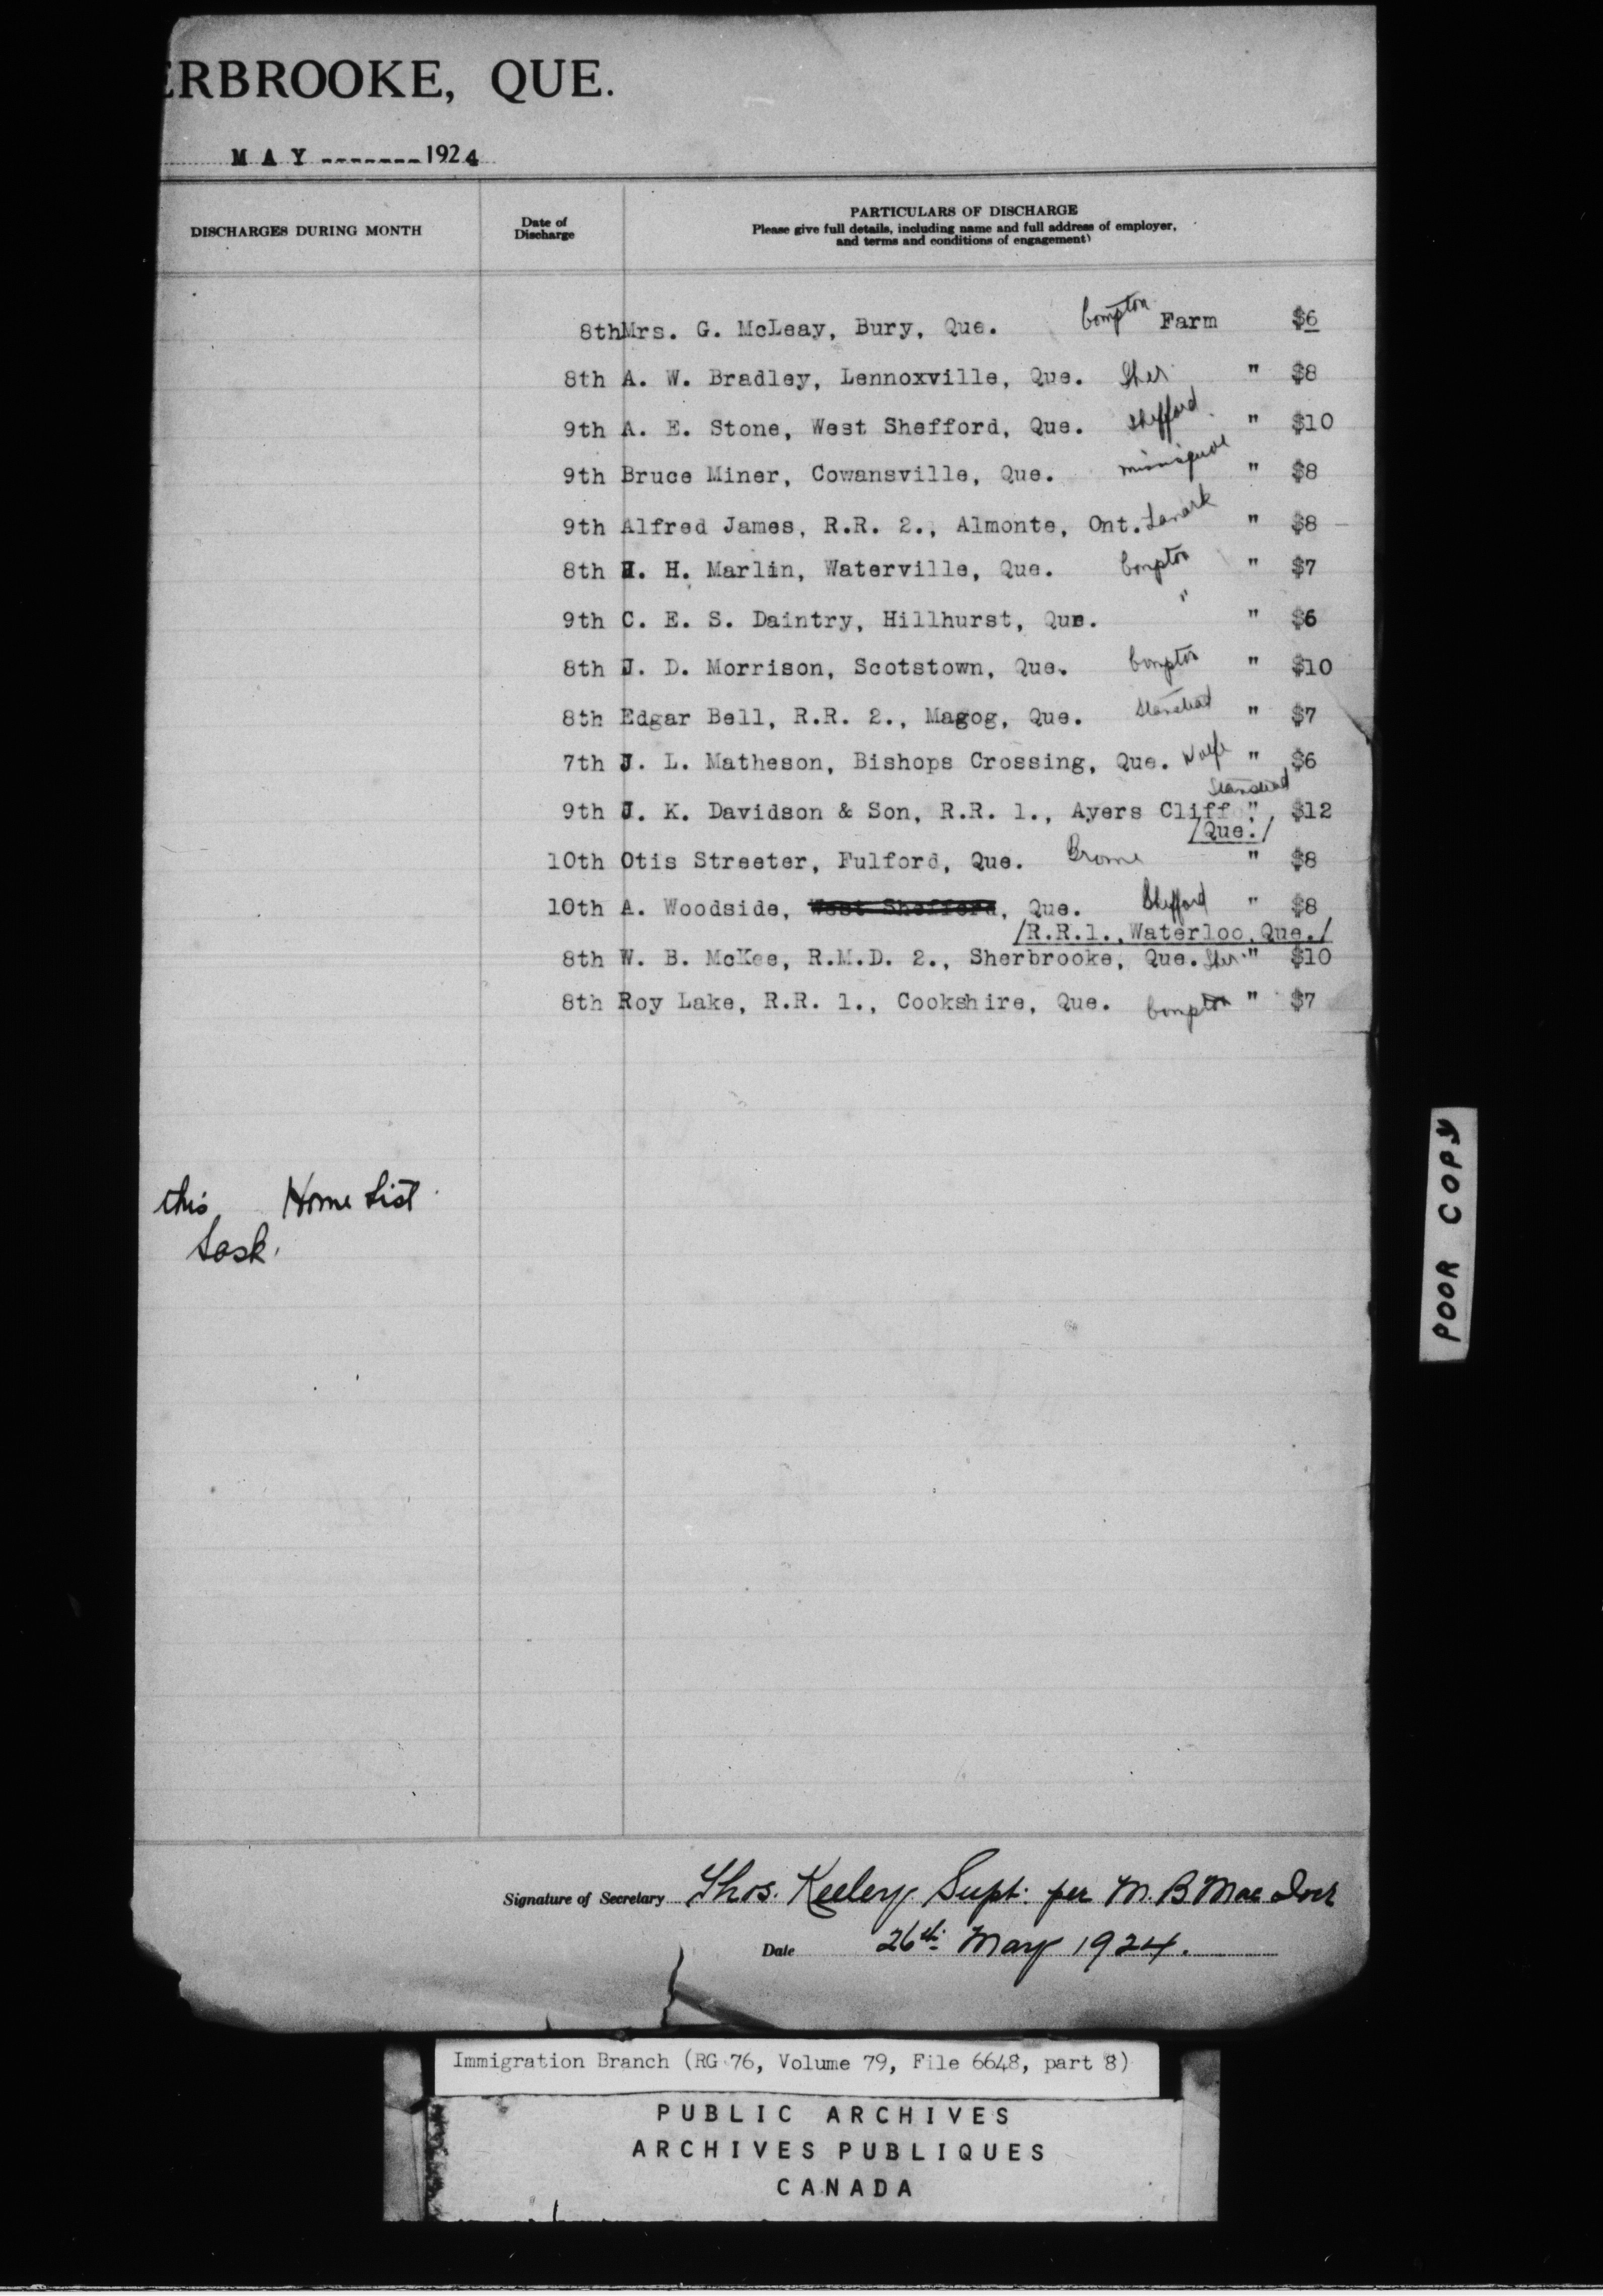 ERBROOKE, QUE.
MAY-------1924
DISCHARGES DURING MONTH
Date of
Discharge
PARTICULARS OF DISCHARGE
Please give full details, including name and full address of employer,
and terms and conditions of engagement)
8th Mrs. G. McLeay, Bury, Que. Compton Farm $6
8th A. W. Bradley, Lennoxville, Que. Sher " $8
9th A. E. Stone, West Shefford, Que. Shefford. " $10
9th Bruce Miner, Cowansville, Que. Missisquoi " $8
9th Alfred James, R.R. 2., Almonte, Ont. Lanark " $8
8th H. H. Marlin, Waterville, Que. Compton " $7
9th C. E. S. Daintry, Hillhurst, Que. " " $6
8th J. D. Morrison, Scotstown, Que. Compton " $10
8th Edgar Bell, R.R. 2., Magog, Que. Stanstead " $7
7th J. L. Matheson, Bishops Crossing, Que. Wolfe " $6
Stanstead
9th J. K. Davidson & Son, R.R. 1., Ayers Cliff " $12
/Que./
10th Otis Streeter, Fulford, Que. Brome " $8
10th A. Woodside, West Shefford, Que. Shefford " $8
/R.R.1., Waterloo, Que./
8th W. B. McKee, R.M.D. 2., Sherbrooke, Que. Sher. " $10
8th Roy Lake, R.R. 1., Cookshire, Que. Compton " $7
this Home List
Sask.
POOR COPY
Signature of Secretary Thos. Keeley Supt. per M. B. Mac
Date 26th May 1924.
Immigration Branch (RG 76, Volume 79, File 6648, part 8)
PUBLIC ARCHIVES
ARCHIVES PUBLIQUES
CANADA